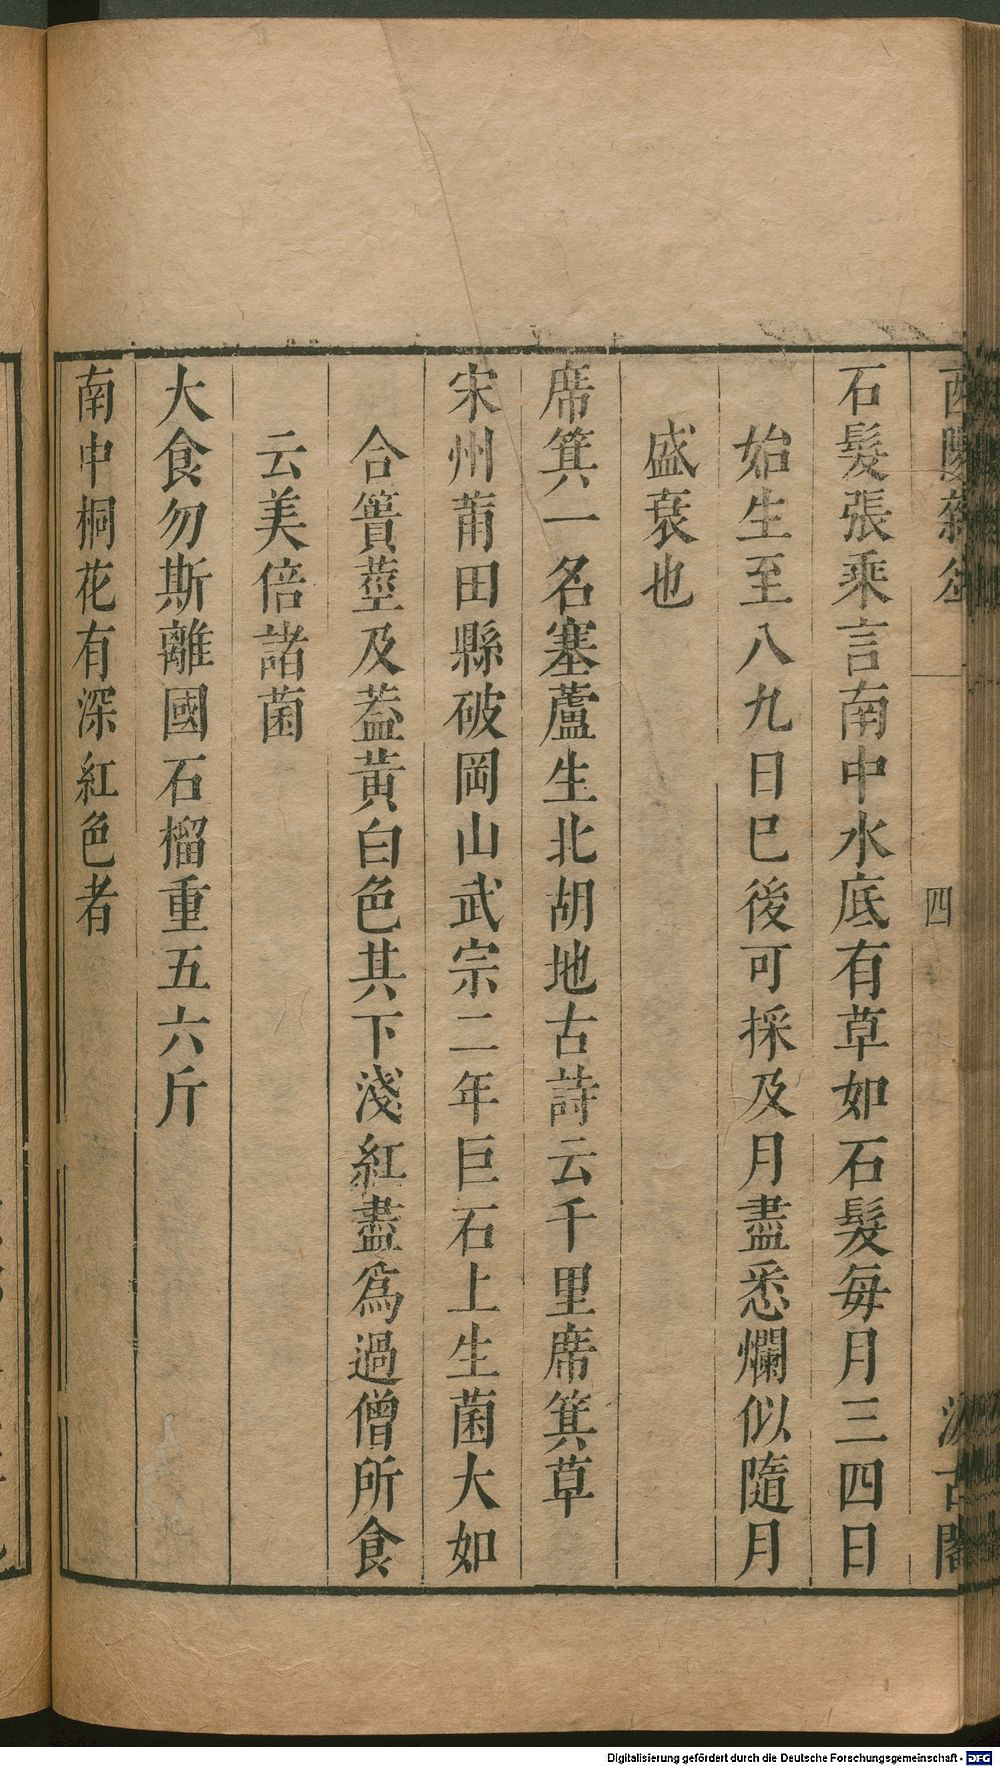 酉陽雜俎
四
汲古閣
石髮張乘言南中水底有草如石髮每月三四日
始生至八九日巳後可採及月盡悉爛似隨月
盛衰也
席箕一名塞蘆生北胡地古詩云千里席箕草
宋州莆田縣破岡山武宗二年巨石上生菌大如
合簣莖及葢黃白色其下淺紅盡爲過僧所食
云美倍諸菌
大食勿斯離國石榴重五六斤
南中桐花有深紅色者
Digitalisierung gefördert durch die Deutsche Forschungsgemeinschaft - DFG